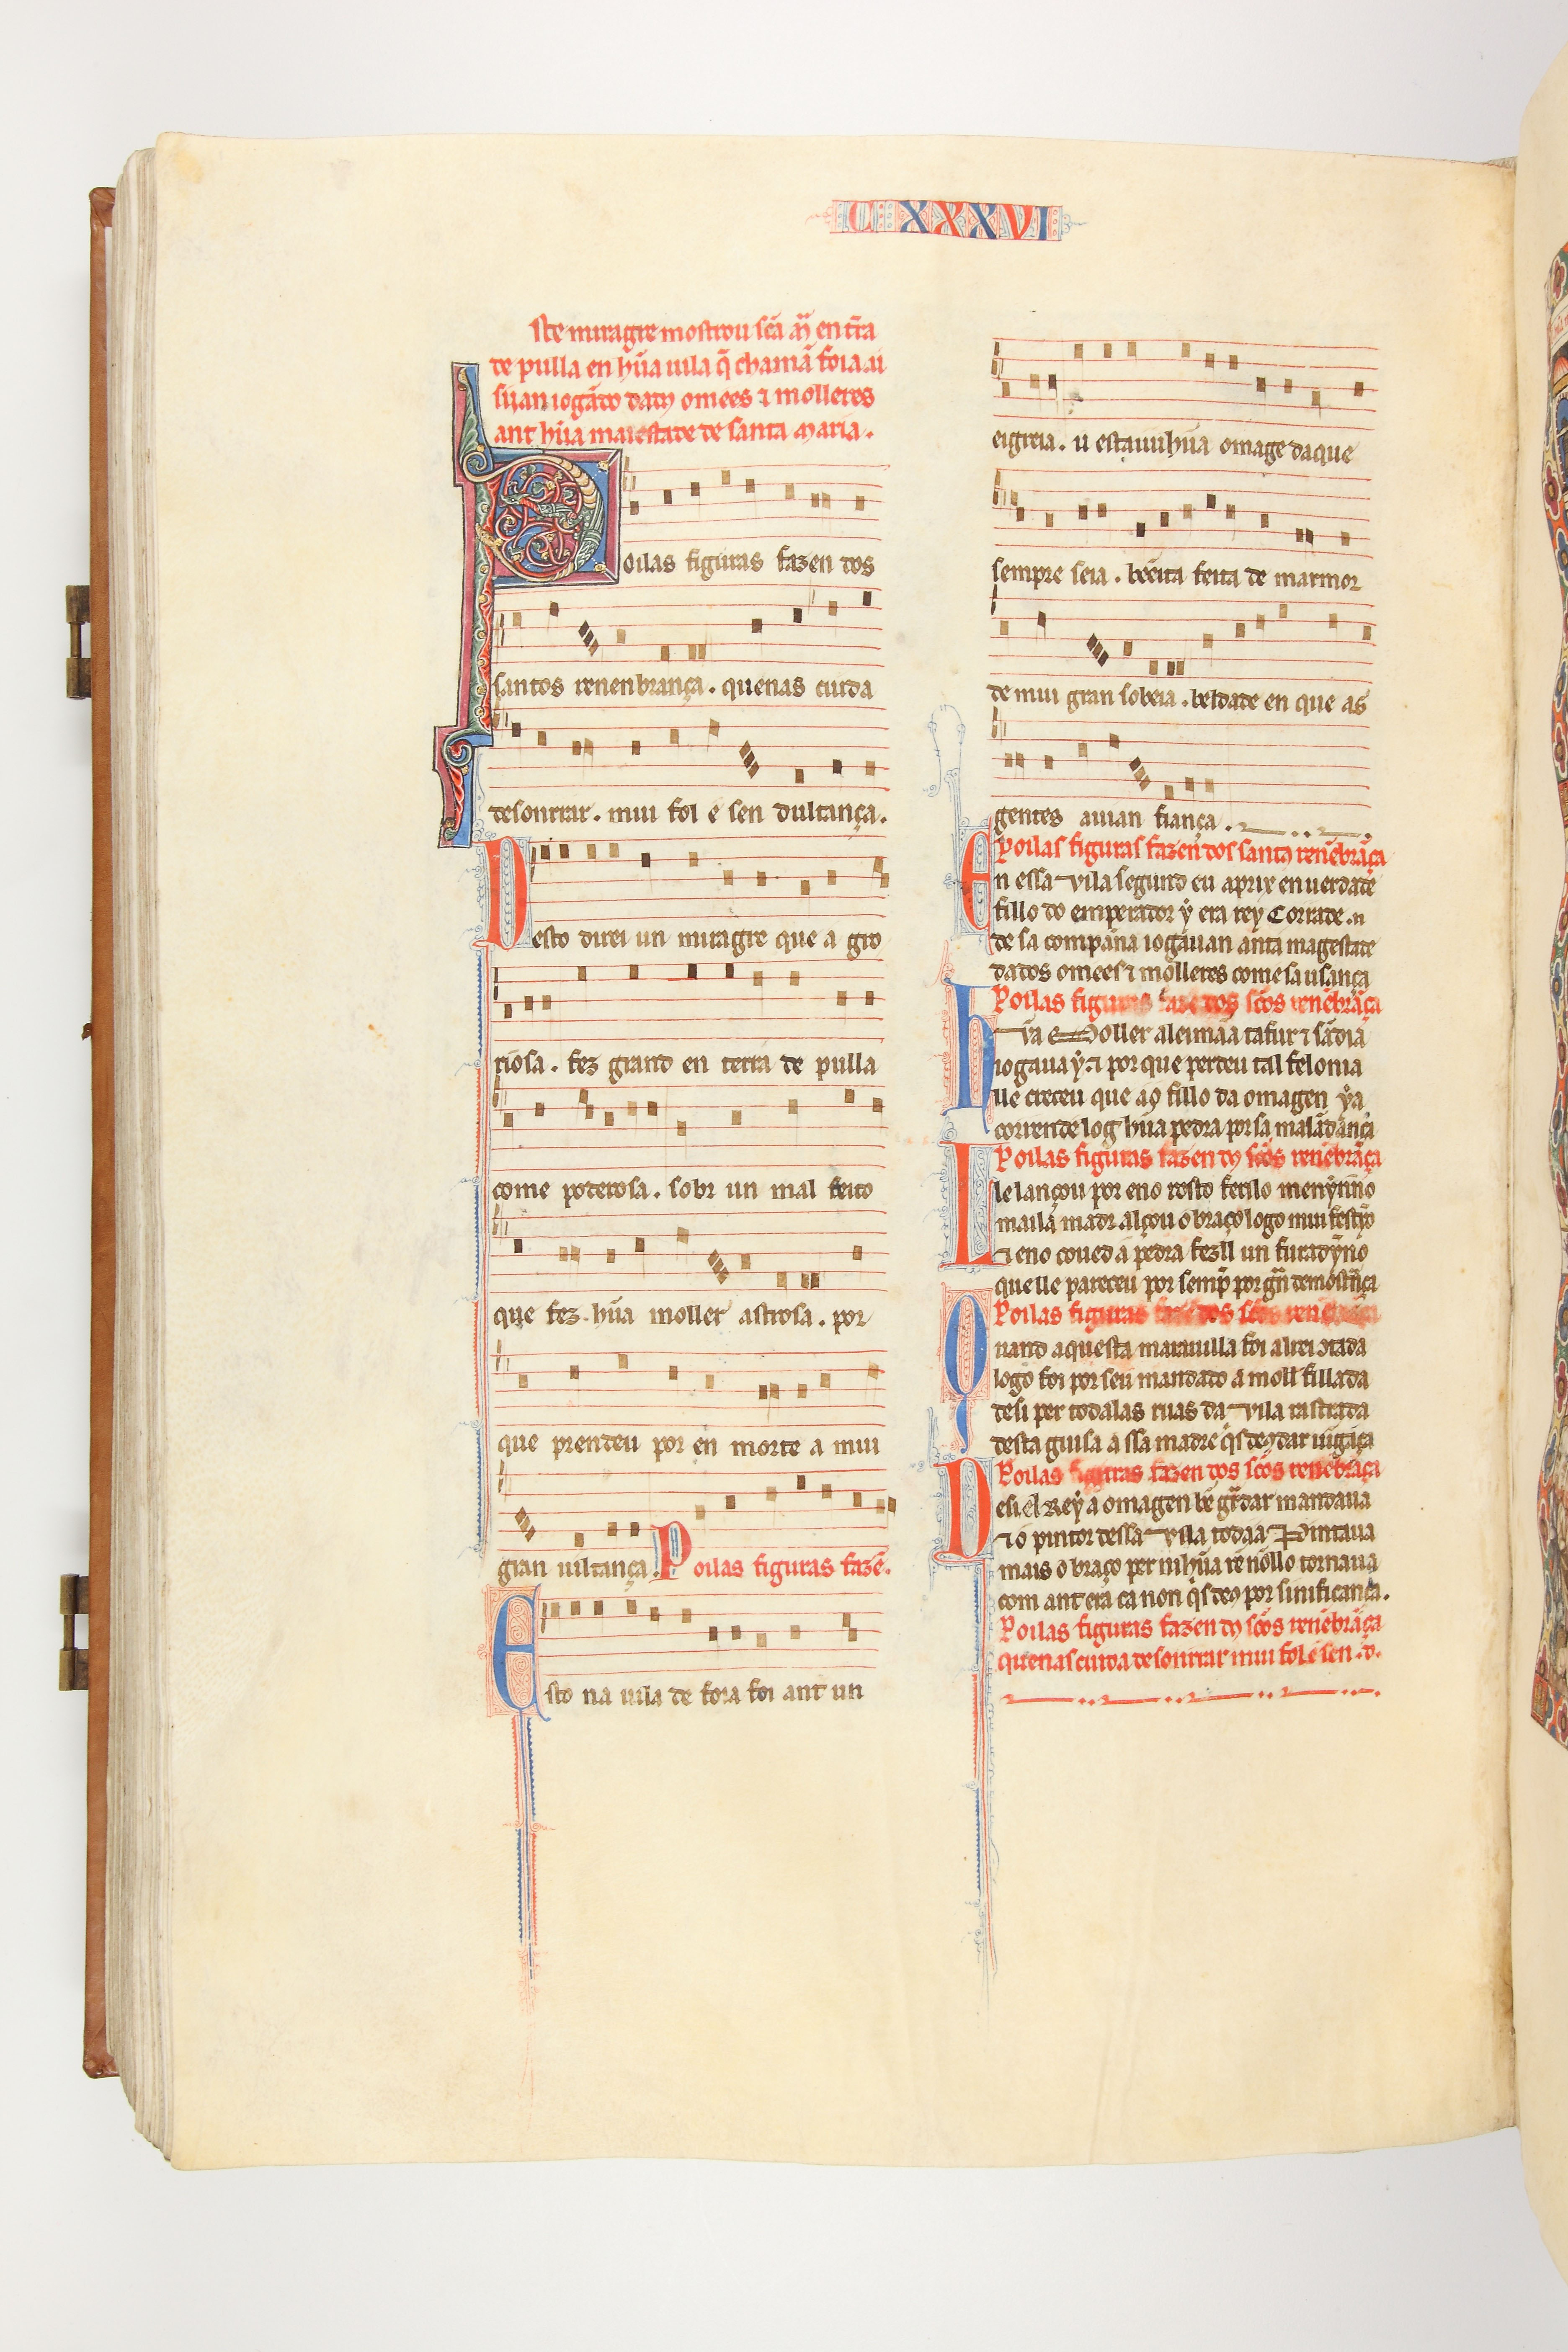 CXXXVI
ste miragre mostrou sc̃a m̃ en t̃ra
de pulla en hũa uila q̃ chamã foia. ui
siian iogãdo dadꝯ omees ⁊ molleres
ant hũa maiestade de santa maria.
Polas figuras fazen dos
santos renenbrança. quenas cuida
desonrrar. mui fol e sen dultança.
Desto direi un miragre que a gro
riosa. fez grand en terra de pulla
come poderosa. sobr un mal feito
que fez hũa moller astrosa. por
que prendeu por en morte a mui
gran uiltança. Polas figuras fazẽ.
Esto na uila de foia foi ant un
eigreia. u estauuhũa omage daque
sempre seia. bẽeita feita de marmor
de mui gran sobeia. beldade en que as
gentes auian fiança.
Polas figuras fazen dos santꝯ renẽbrãça
En essa uila segund eu aprix en uerdade
fillo do emperador ẏ era rey Corrade. ⁊
de sa compãna iogauan ant a magestade
dados omees ⁊ molleres come sa usança
Polas figuras fazẽ dos sc̃os renẽbrãça
Hũa Moller aleimãa tafur ⁊ sãdia
iogaua ẏ. ⁊ por que perdeu tal felonia
lle creceu que ao fillo da omagen ẏa
corrende log hũa pedra por sa malãdãnça
Polas figuras fazen dꝯ sc̃os renẽbrãça
Le lançou por eno rosto ferilo menẏnno
mai la madr alçou o braço logo mui festỹo
⁊ eno coued a pedra fezll un furadẏno
que lle pareceu por semp̃ por g̃n demost̃nça
Polas figuras fazẽ dos sc̃os renẽbrãça
Quand aquesta marauilla foi al rei ɔtada
logo foi por seu mandado a moll fillada
desi per todalas ruas da uila rastrada
desta guisa a ssa madre q̃s deꝯ dar uigãça
Polas figuras fazen dos sc̃os renẽbrãça
Desi el Reẏ a omagen bẽ g̃rdar mandaua
⁊ o pintor dessa uila todaa Pintaua
mais o braço per nihũa rẽ nollo tornaua
com ant era ca non q̃s deꝯ por sinificança.
Polas figuras fazen dꝯ sc̃os renẽbrãça
quenas cuida desonrrar mui fol e sen. d.